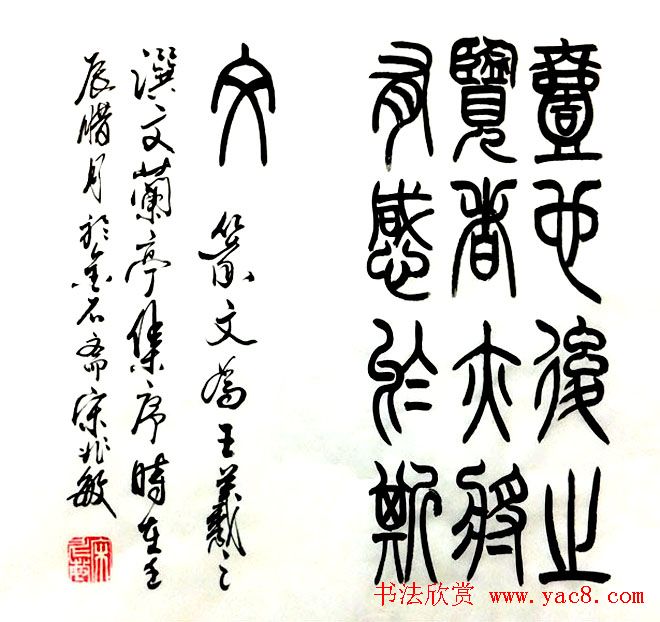 壹也後之
覽者亦將
有感於斯
文
篆文為王羲之
撰文蘭亭集序時在壬
辰腊月於金石斋宋兆敏
书法欣赏 www.yac8.com